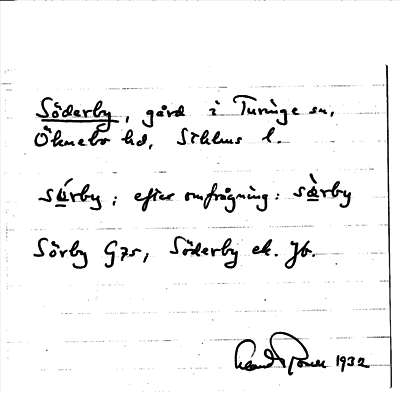 Söderby, gård i Turinge sn,
Öknebo hd, Sthlms l.
sö̀rby; efter omfrågning: sö̀rby
Sörby G75, Söderby ek. Jb.
1932